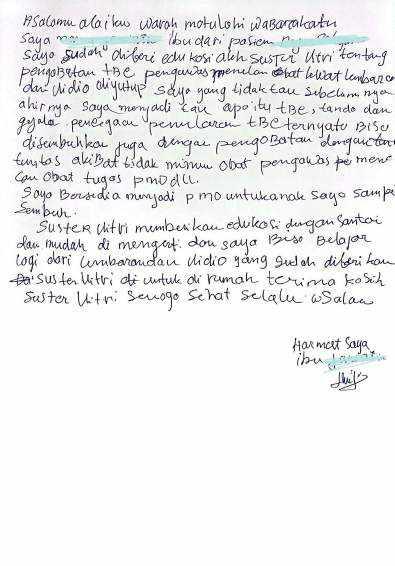 Asalamu alaikum warah motulohi wabarakatu
Saya ibu dari pasien
Saya sudah diberi edukasi oleh Suster Vitri tentang
pengobatan TBC pengawas menelan obat lewat lembaran
dan vidio diyutup saya yang tidak tau sebelum nya
ahirnya saya menjadi tau apa itu tBC, tanda dan
gejala pencegaan penularan tBC ternyata Bisa
disembuhkan juga dengan pengobatan dengan
tuntas akibat tidak minum obat pengawas mene
lan obat tugas pmo dll.
Saya Bersedia menjadi pmo untuk anak saya sampi
Sembuh.
Suster Vitri memberikan edukasi dengan santai
dan mudah di mengerti dan saya Bisa Belajar
lagi dari lembaran dan vidio yang sudah diberikan
Suster Vitri untuk di rumah terima kasih
Suster Vitri Semogo Sehat Selalu wSalam
Harmat Saya
ibu